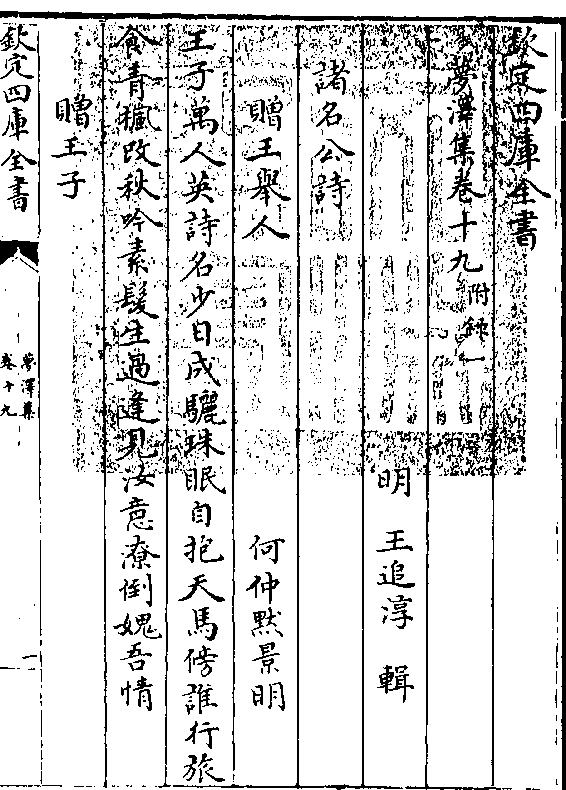 欽定四庫全書
夢澤集卷十九 附錄一
明 王追淳 輯
諸名公詩
贈王舉人 何仲默景明
王子萬人英詩名少日成驪珠眠自抱天馬傍誰行旅
食青楓改秋吟素髮生過逢見汝意潦倒愧吾情
贈王子
欽定四庫全書
夢澤集
卷十九
一